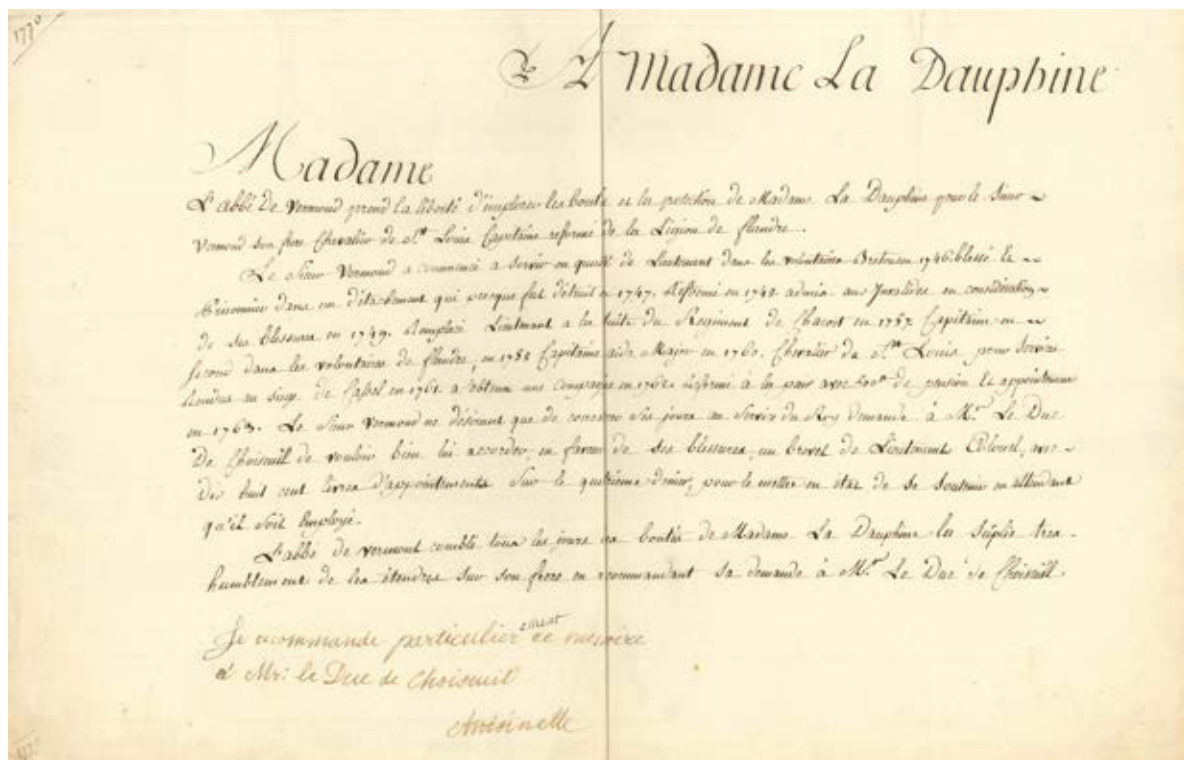 1770
A Madame La Dauphine
Madame
L'abbé De Vermond prend la liberté d'implorer les bontés et la protection de Madame La Dauphine pour le Sieur
Vermond son frere Chevalier de St. Louis Capitaine reformé de la Légion de flandre.
Le Sieur Vermond a commencé a servir en qualité de Lieutenant dans les volontaires Bretons en 1746. blessé Et
Prisonnier dans un détachement qui presque fut détruit en 1747. Reformé en 1748 admis aux Invalides en considération
de ses blessures en 1749. Remplacé Lieutenant a la suite du Regiment de en 1757 Capitaine en
Second dans les volontaires de flandre, en 1758 Capitaine aide Major en 1760. Chevalier de St. Louis pour Services
Rendus au siege de Cassel en 1761 a obtenu une compagnie en 1762 reformé à la paix avec de pension Et appointemens
en 1763. Le Sieur Vermond ne désirant que de consacrer Ses jours au Service du Roy demande à Mr. Le Duc
De Choiseuil de vouloir bien lui accorder, en faveur de ses blessures, un brevet de Lieutenant Colonel, avec
dix huit cent livres d'appointements Sur le quatrieme denier, pour le mettre en état de se soutenir en attendant
qu'il Soit Employé.
L'abbé de vermont comblé tous les jours des bontés de Madame La Dauphine la Suplie tres
humblement de les étendre sur son frere en recommandant sa demande à Mr. Le Duc de Choiseuill.
Je recommande particulierement ce memoire
a Mr: le Duc de Choiseuil
Antoinette